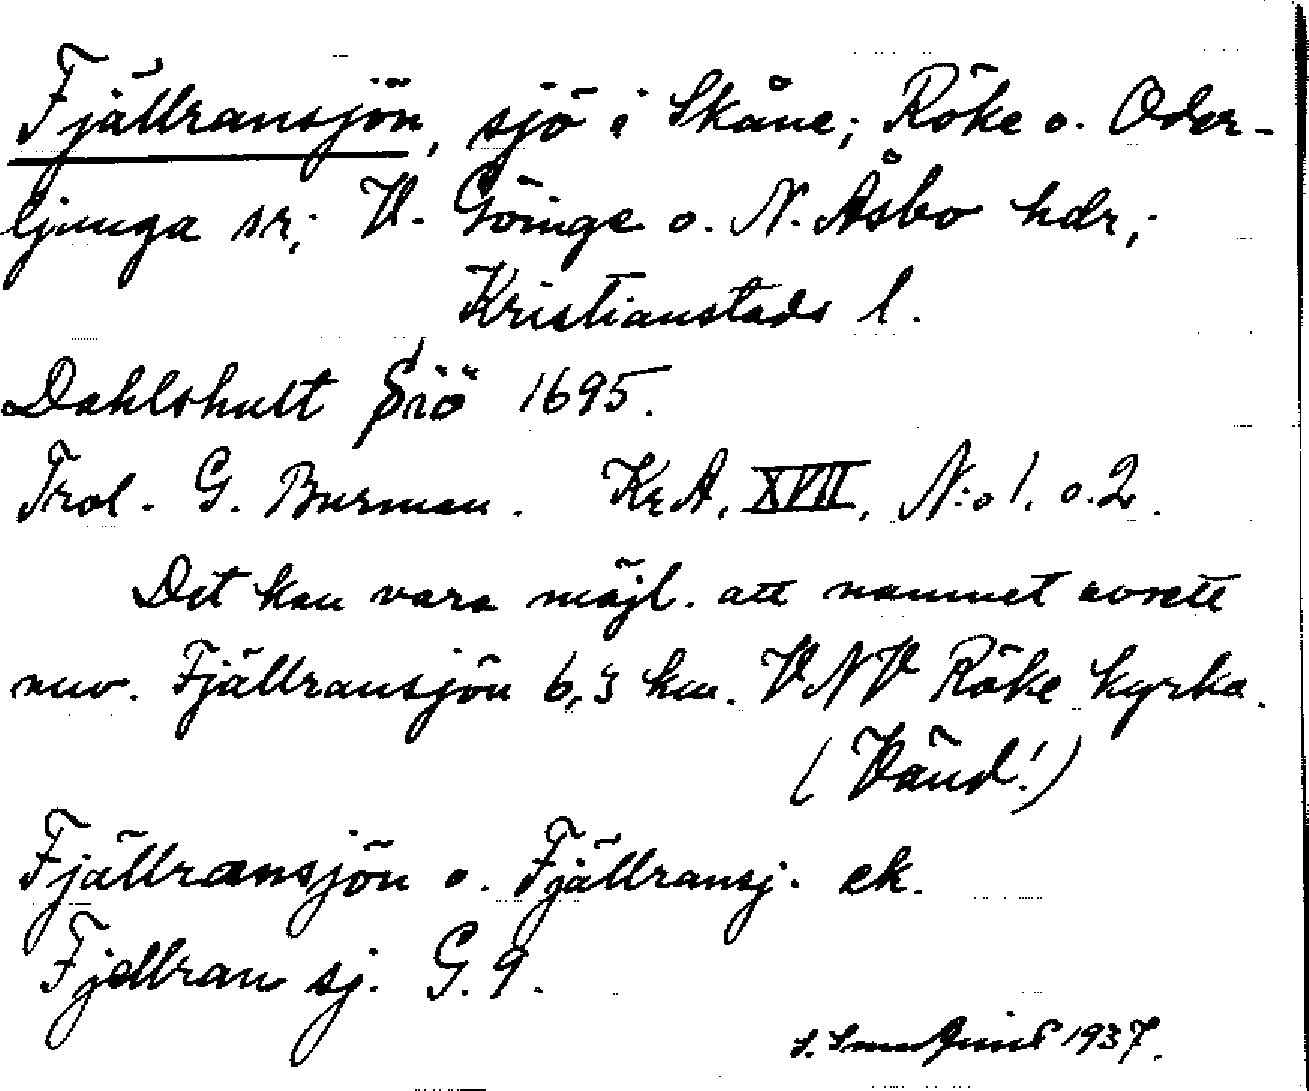 Fjällransjön, sjö i Skåne; Röke o. Oder-
ljunga sr; V. Göinge o. N. Åsbo hdr,;
Kristianstads l.
Dahlshult Siö 1695.
Trol. G. Burman. Kr A, XVII, N:o 1. o. 2.
Det kan vara möjl. att namnet avsett
nuv. Fjällransjön 6,3 km. VNV Röke kyrka.
(Vänd!)
Fjällransjön o. Fjällransj. ek.
Fjellran sj. G. 9.
S. 1937.